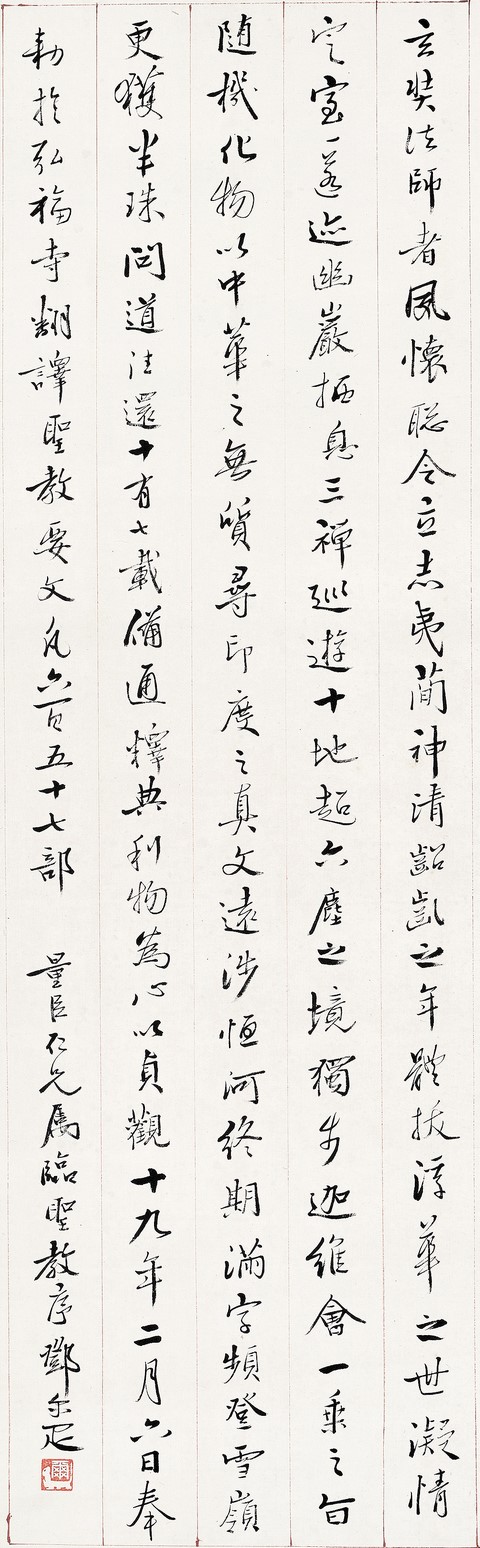 玄奘法師者夙懷聡令立志夷簡神清齠齔之年體拔浮華之世凝情
定室匿迹幽巖栖息三禪巡遊十地超六塵之境獨步迦維會一乘之旨
隨機化物以中華之無質尋印度之真文遠涉恒河終期滿字頻登雪嶺
更獲半珠問道法還十有七載備通釋典利物為心以貞觀十九年二月六日奉
勅於弘福寺翻譯聖教要文凡六百五十七部
量臣仁兄屬臨聖教序鄧尔疋